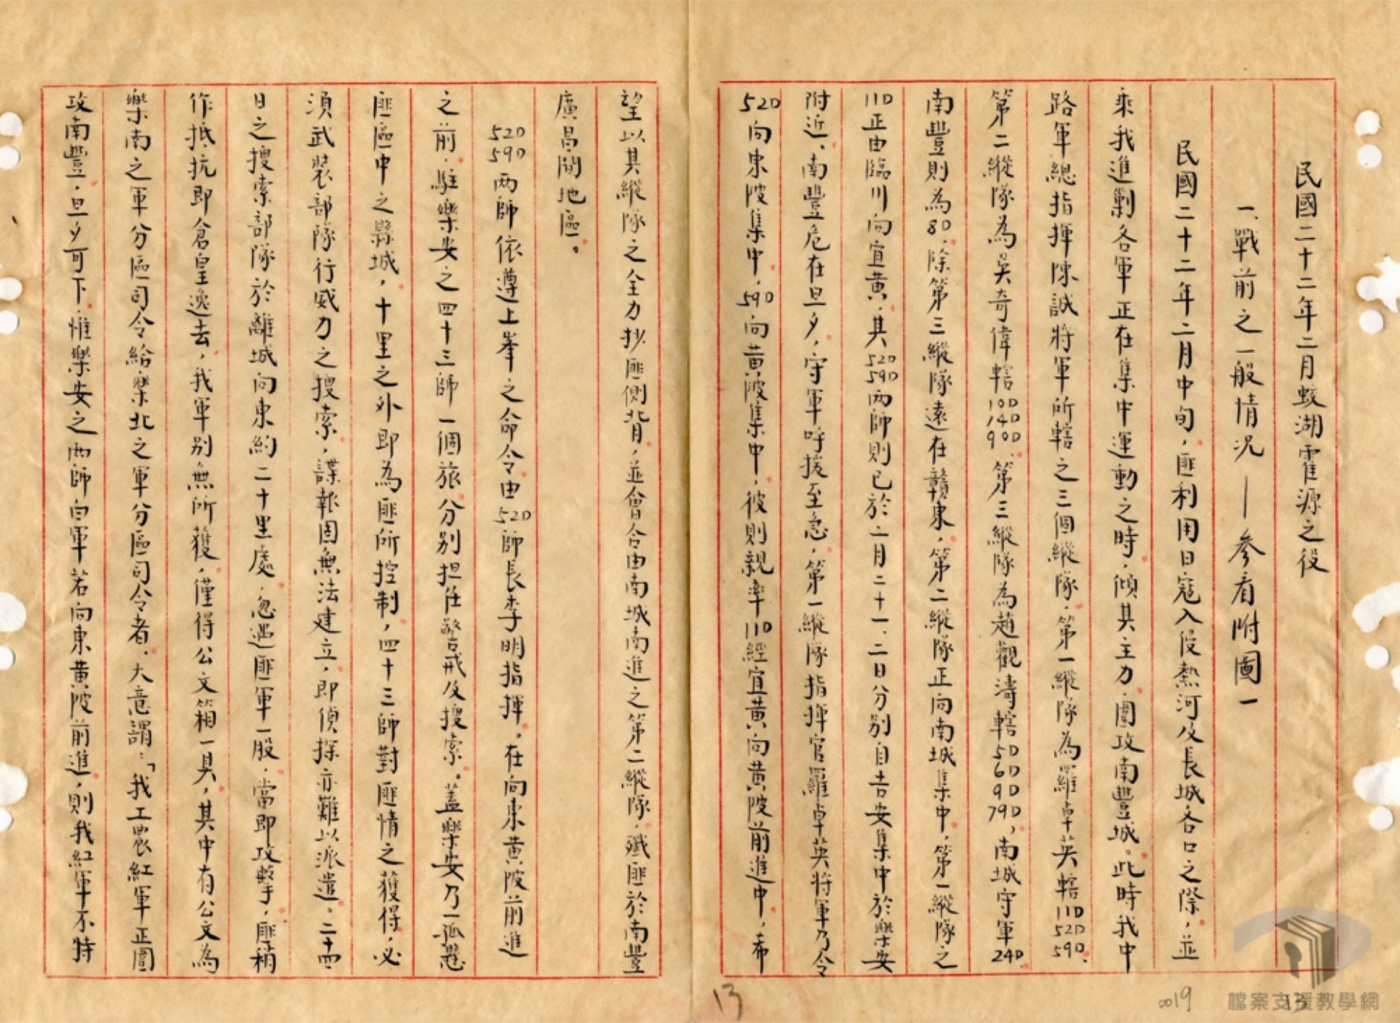 民國二十二年二月蛟湖霍源之役
一、戰前之一般情況——參看附圖一
民國二十二年二月中旬，匪利用日寇入侵熱河及長城各口之際，並
乘我進剿各軍正在集中運動之時，傾其主力，圍攻南豐城。此時我中
路軍總指揮陳誠將軍所轄之三個縱隊，第一縱隊為羅卓英轄11D52D59D.
第二縱隊為吳奇偉轄10D14D90D.第三縱隊為趙觀濤轄5D6D9D79D，南城守軍24D.
南豐則為8D.除第三縱隊遠在贛東，第二縱隊正向南城集中，第一縱隊之
11D正由臨川向宜黃，其52D59D兩師則已於二月二十一、二日分別自吉安集中於樂安
附近。南豐危在旦夕，守軍呼援至急，第一縱隊指揮官羅卓英將軍乃令
52D向東陂集中，59D向黃陂集中，彼則親率11D經宜黃向黃陂前進中，希
望以其縱隊之全力抄匪側背，並會合由南城南進之第二縱隊，殲匪於南豐
廣昌間地區。
52D59D兩師依遵上峯之命令由52D師長李明指揮，在向東黃陂前進
之前，駐樂安之四十三師一個旅分別担任警戒及搜索。蓋樂安乃一孤懸
匪區中之縣城，十里之外即為匪所控制，四十三師對匪情之獲得，必
須武裝部隊行威力之搜索，諜報固無法建立，即偵探亦難以派遣。二十四
日之搜索部隊於離城向東約二十里處，忽遇匪軍一股，當即攻擊，匪稍
作抵抗即倉皇逸去，我軍別無所獲，僅得公文箱一具，其中有公文為
樂南之軍分區司令給樂北之軍分區司令者，大意謂：「我工農紅軍正圍
攻南豐，旦夕可下，惟樂安之兩師白軍若向東黃陂前進，則我紅軍不特
13
0019
檔案支援教學網